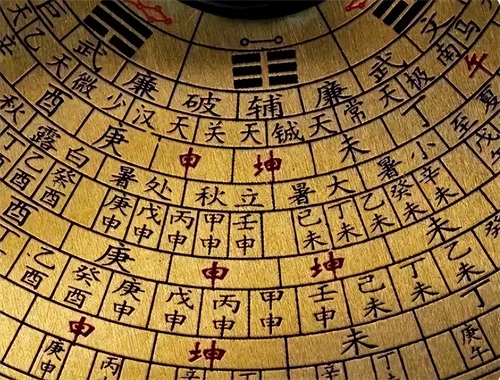 巨 武 廉 破 辅 廉 武 文
乙 天 微 少 汉 天 关 天 钺 天 常 天 极 南
酉 庚 申 坤 未 丁 午
秋 露 白 暑 处 秋 立 暑 大 暑 小 至 夏
丁酉 乙酉 癸酉 庚申 戊申 丙申 甲申 壬申 己未 丁未 乙未 癸未 辛未
酉 庚 申 坤 未
乙酉 癸酉 庚申 戊申 丙申 甲申 壬申 己未 丁未 乙未
申 坤 未 丁
庚申 丙 庚午